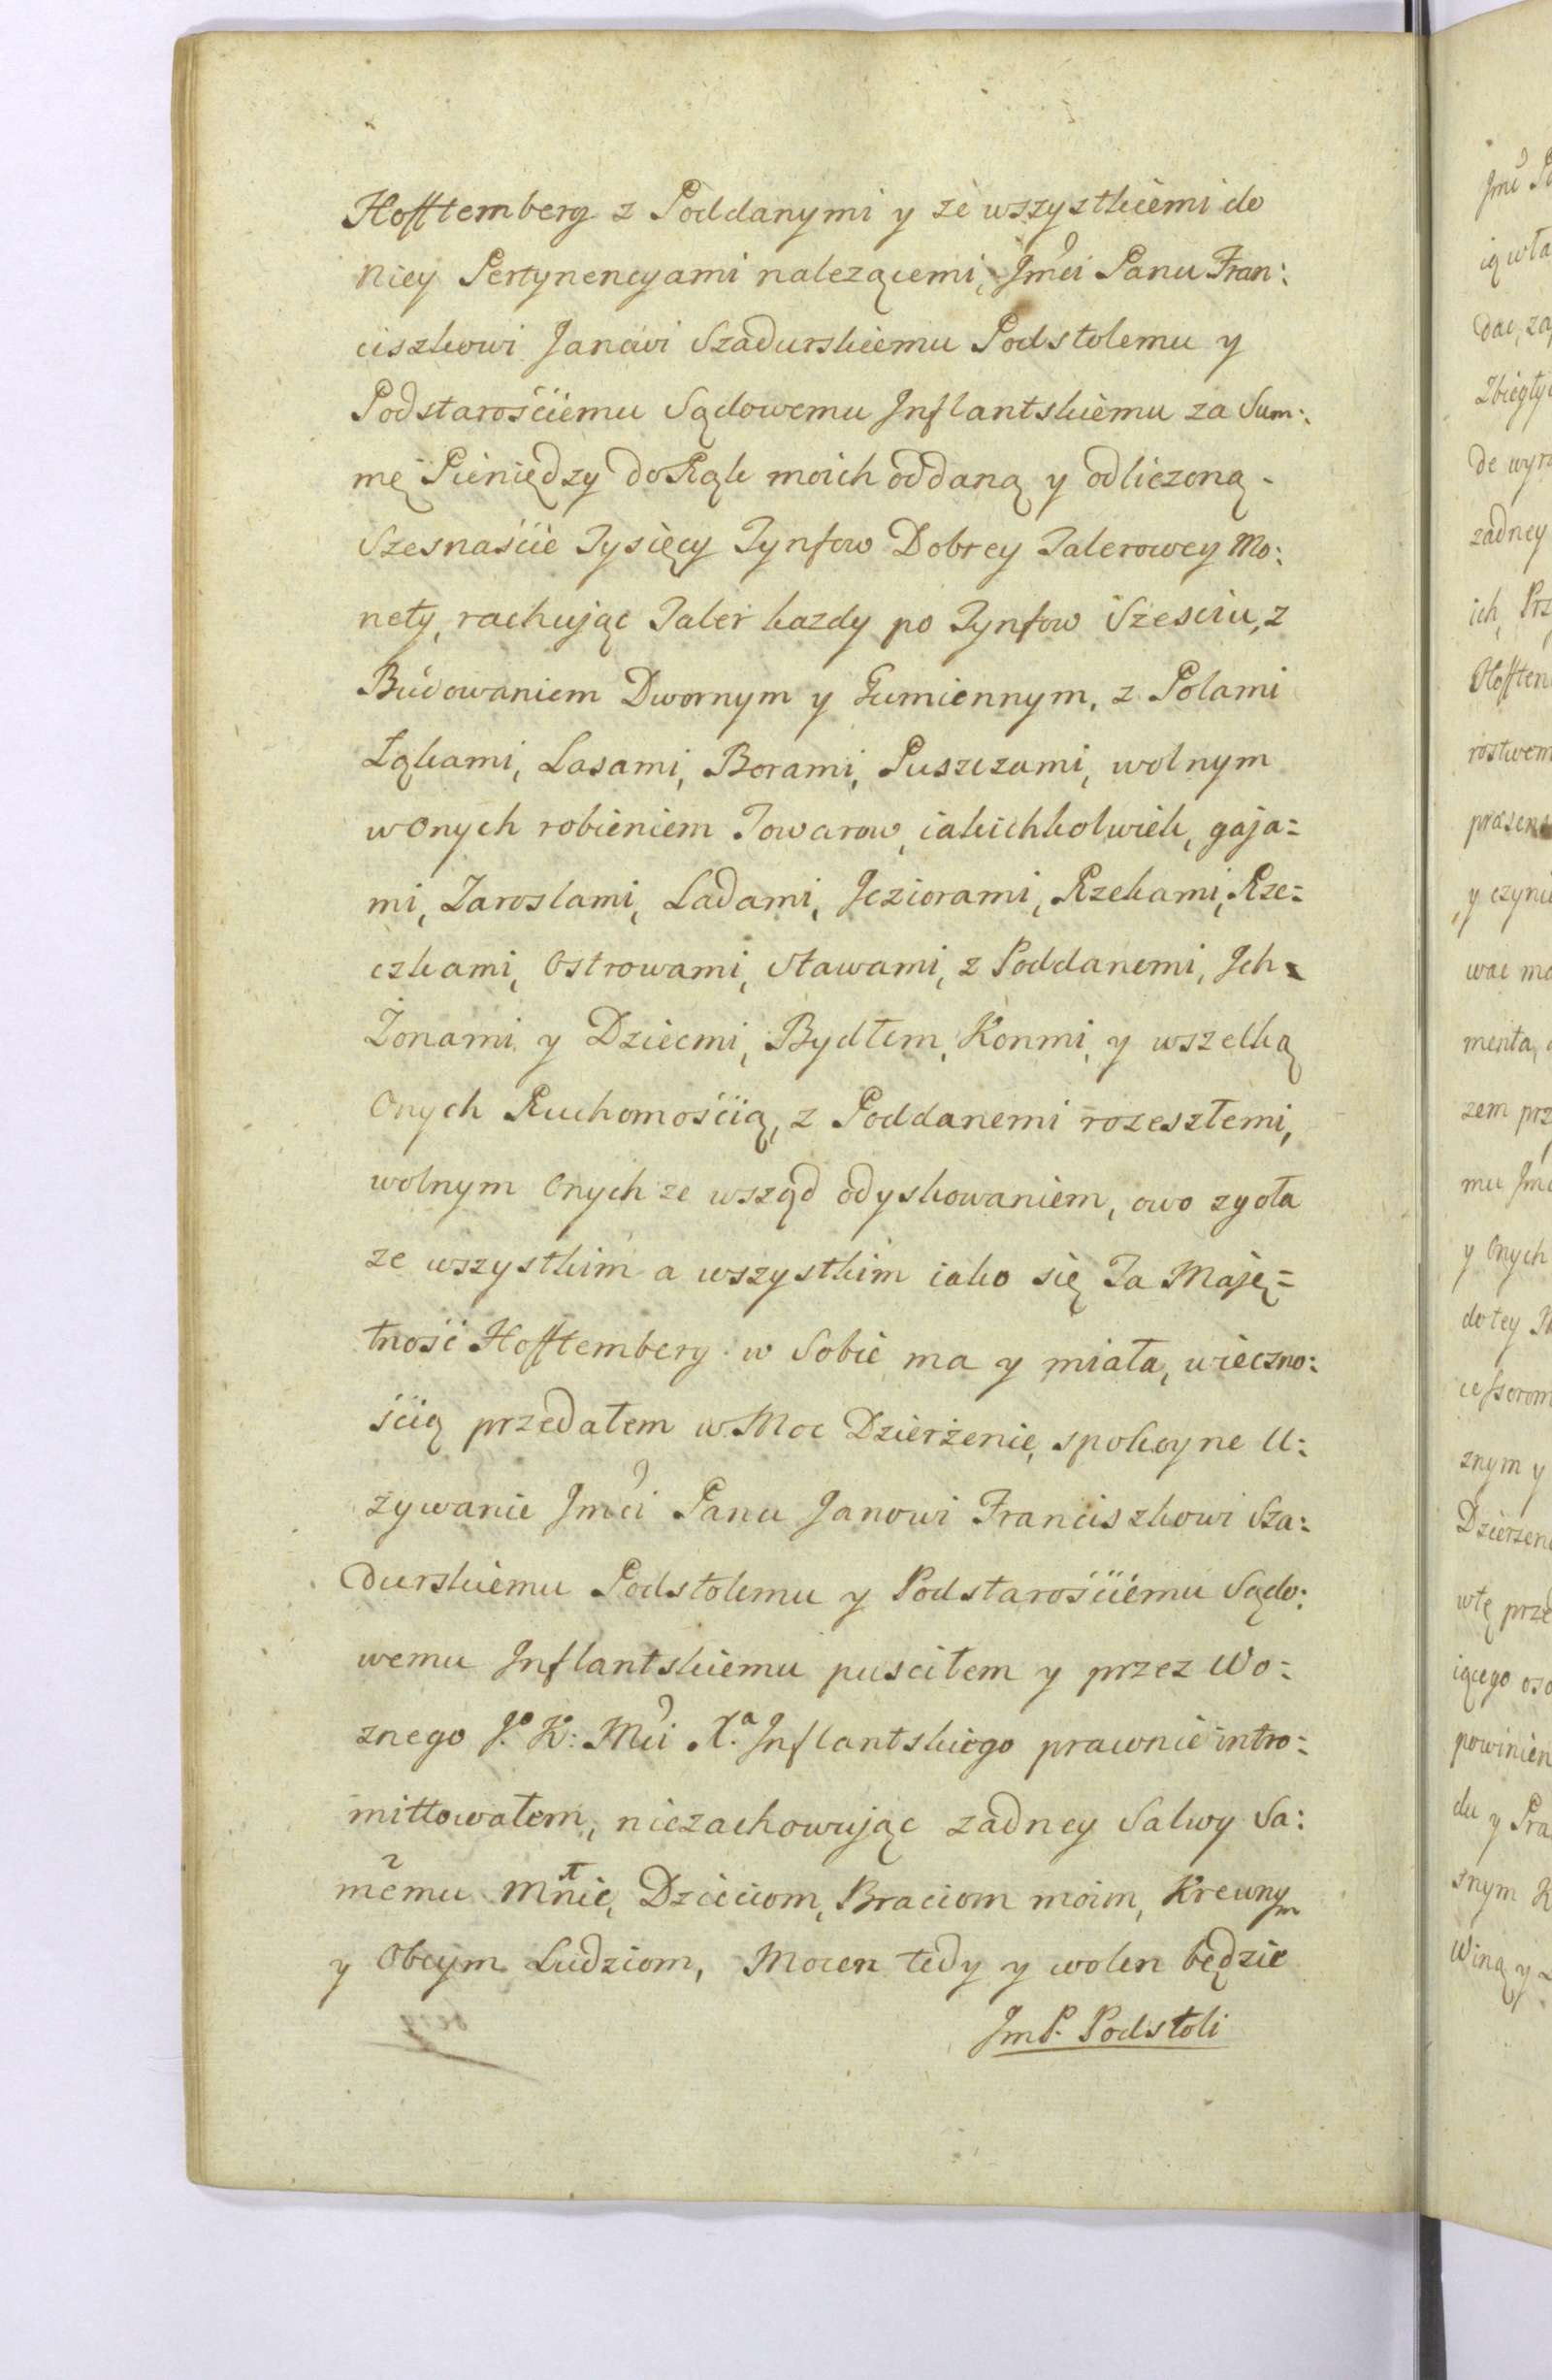 Hofftemberg z Poddanymi y ze wszystkiemi do
Niey Pertynencyami nalezącemi, Jmci Panu Fran:
ciszkowi Janowi Szadurskiemu Podstolemu y
Podstarościemu Sądowemu Inflantskiemu za Sum:
mę Pieniędzy do Rąk moich oddaną y odliczoną
Szesnaście Tysięcy Tynfow Dobrey Talerowey Mo:
nety, rachując Taler kazdy po Tynfow Szesciu, z
Budowaniem Dwornym y Gumiennym, z Polami
Łąkami, Lasami, Borami, Puszczami, wolnym
w Onych robieniem Towarow, iakichkolwiek, gaja=
mi, Zaroslami, Ladami, Jeziorami, Rzekami, Rze=
czkami, Ostrowami, Stawami, z Poddanemi, Ich
Żonami y Dziecmi, Bydłem, Konmi, y wszelką
Onych Ruchomością, z Poddanemi rozeszłemi,
wolnym Onych ze wsząd odyskowaniem, owo zgoła
ze wszystkim a wszystkim iako się Ta Maję=
tność Hofftemberg w Sobie ma y miała, wieczno:
ścią przedałem w Moc Dzierżenie, spokoyne U:
zywanie Jmci Panu Janowi Franciszkowi Sza:
durskiemu Podstolemu y Podstarościemu Sądo:
wemu Inflantskiemu puscilem y przez Wo=
znego J.o K: Mci X.a Inflantskiego prawnie intro=
mittowałem, niezachowując zadney Salwy Sa:
memu Mnie, Dzieciom, Braciom moim, Krewnym
y Obcym Ludziom, Mocen tedy y wolen będzie
JmP. Podstoli
Jmć
ią wła
dac, za
Zbiegły
de wyr
zadney
ich, Prz
Hofften
rostwem
præsen
y czyni
wac mo
menta,
zem prz
mu Jmć
y Onych
do tey
cessorom
znym y
Dzierzen
w tę prze
iącego oso
powinien
du y Pra
snym K
Winą y